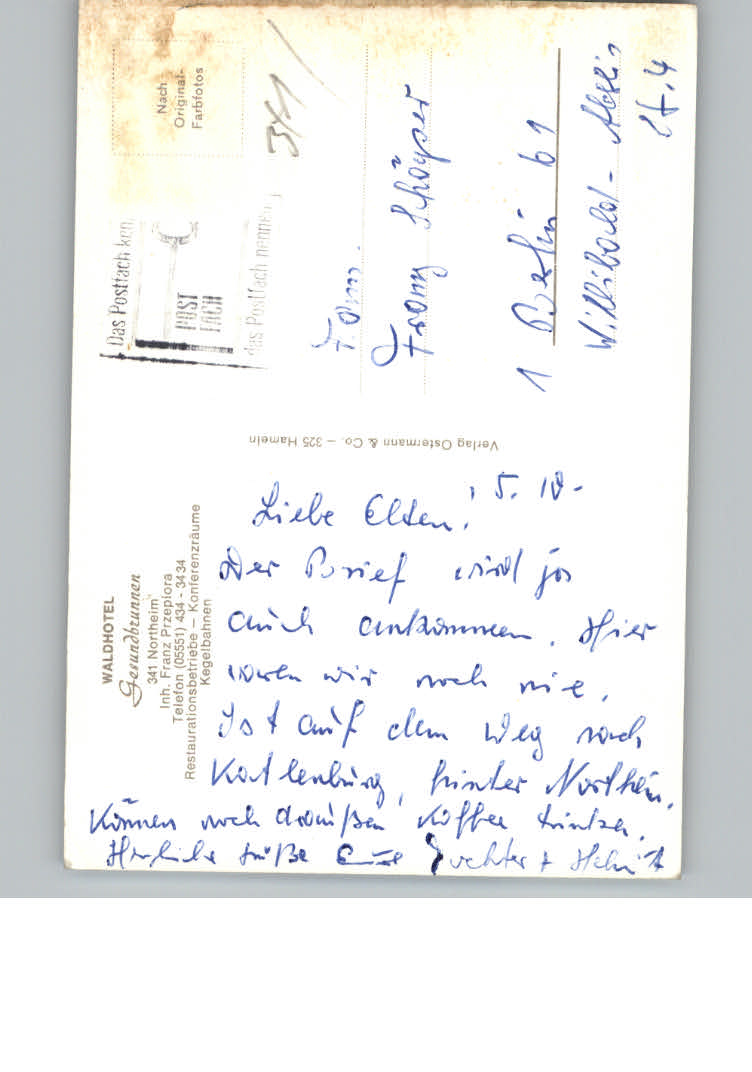 WALDHOTEL
Gesundbrunnen
341 Northeim
Inh. Franz Przepiora
Telefon (05551) 434 - 3434
Restaurationsbetriebe – Konferenzräume
Kegelbahnen
5. 10.
Liebe Eltern!
Der Brief wird ja
auch ankommen. Hier
waren wir noch nie.
Ist auf dem Weg nach
Katlenburg, hinter Northeim.
Können noch draußen Kaffee trinken.
Herzliche Grüße Eure Tochter + Helmut
Verlag Ostermann & Co. – 325 Hameln
Nach
Original-
Farbfotos
Das Postfach
POST
FACH
das Postfach nennen
Fam.
Franz Schöper
1 Berlin 61
Willibald-Alexis